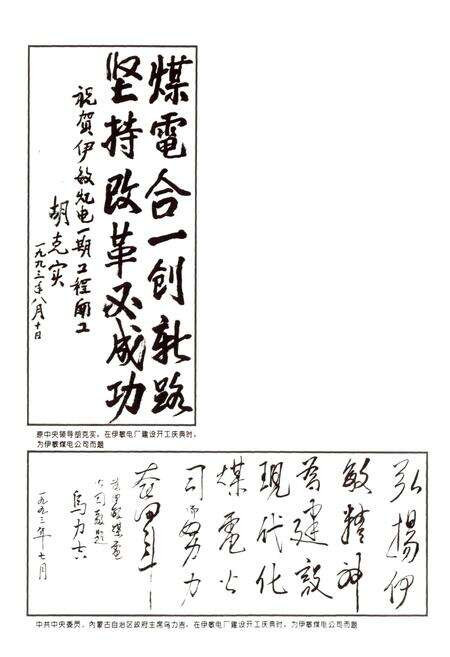 煤電合一創新路
坚持改革必成功
祝賀伊敏煤电一期工程开工
胡克实
一九九三年八月十日
原中央领导胡克实，在伊敏电厂建设开工庆典时，
为伊敏煤电公司而题
弘揚伊
敏精神
為建設
現代化
煤電公
司而努力
奋鬥
為伊敏煤電
公司敬題
乌力吉
一九九三年七月
中共中央委员，内蒙古自治区政府主席乌力吉，在伊敏电厂建设开工庆典时，为伊敏煤电公司而题